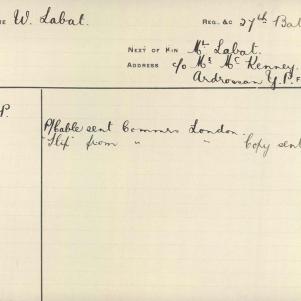 ME W. Labat. REG. &C 27th Bat
NEXT OF KIN Mr Labat.
ADDRESS c/o Mr McKenney.
Ardrossan Y.P.
P.
P/Cable sent Commrs London
"Slip" from " " Copy sent